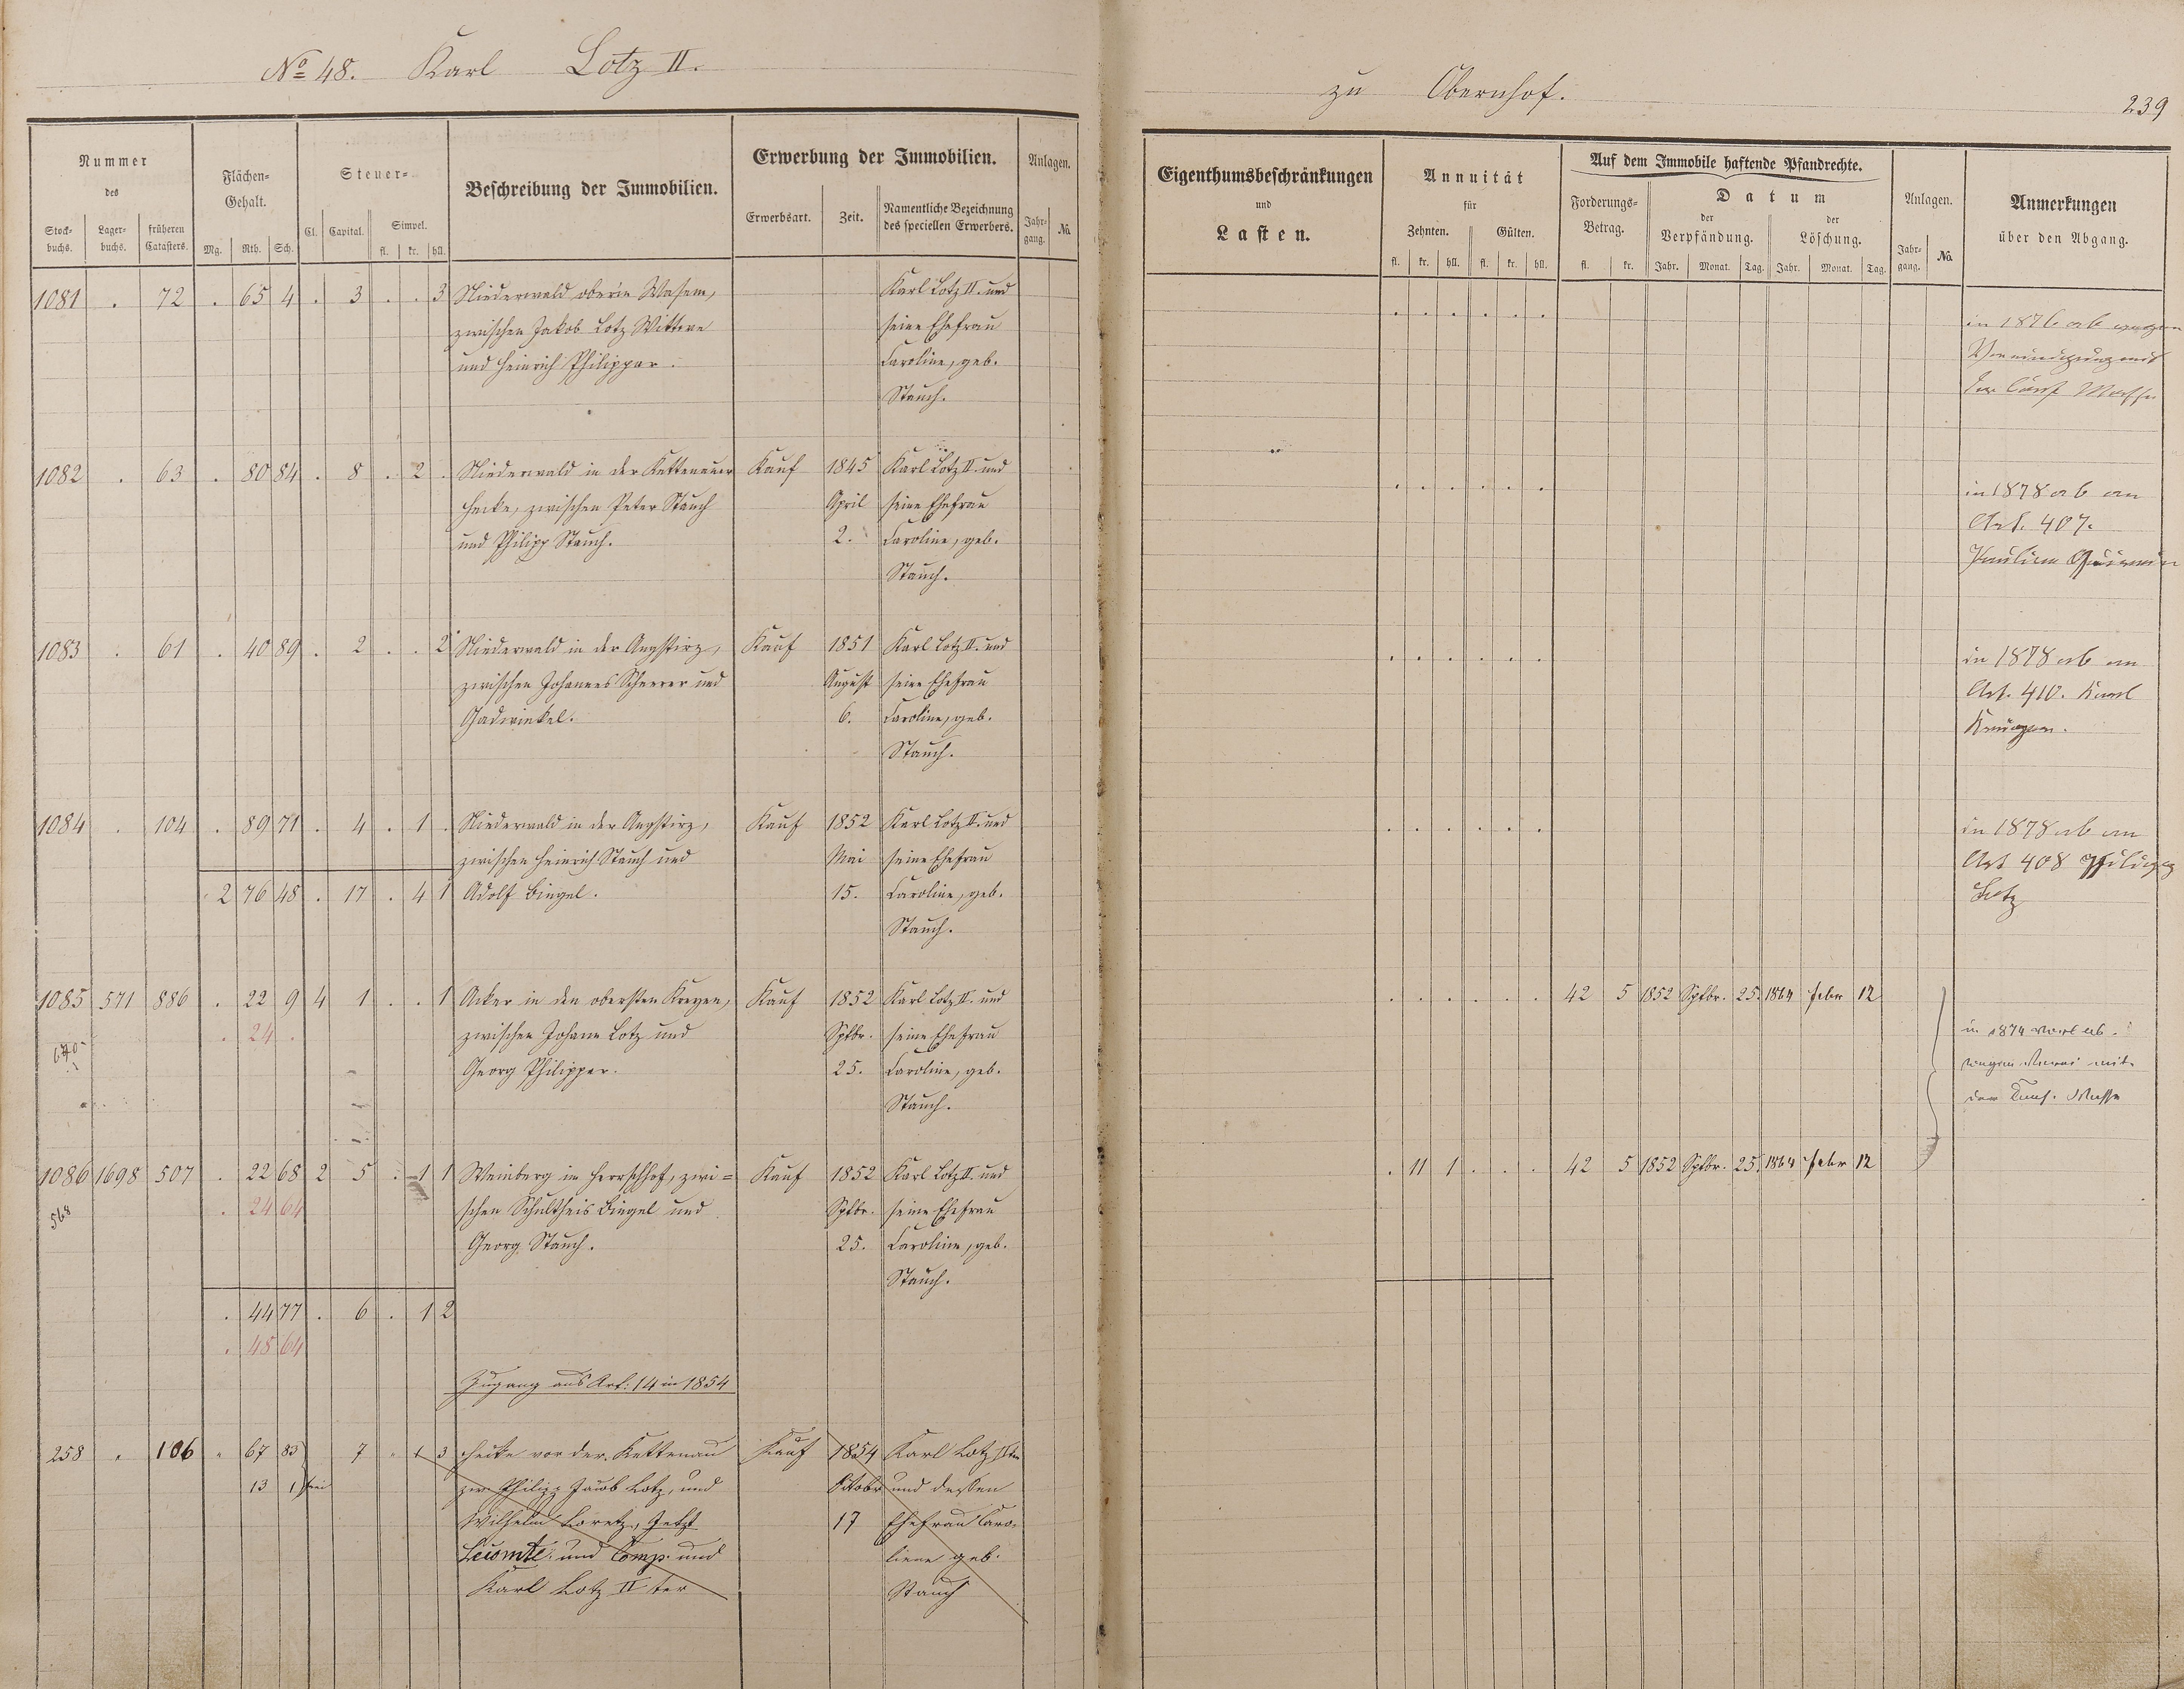 No 48. Karl Lotz II.
zu Obernhof.
239
Nummer des
Stock-buchs. Lager-buchs. früheren Catasters.
Flächen-Gehalt.
Mg. Rth. Sch.
Steuer-
Cl. Capital. Simpel.
fl. kr. hll.
Beschreibung der Immobilien.
Erwerbung der Immobilien.
Erwerbsart. Zeit. Namentliche Bezeichnung des speciellen Erwerbers.
Anlagen.
Jahr-gang. No.
Eigenthumsbeschränkungen
und
Lasten.
Annuität
für
Zehnten. Gülten.
fl. kr. hll. fl. kr. hll.
Auf dem Immobile haftende Pfandrechte.
Forderungs-Betrag.
fl. kr.
Datum
der Verpfändung. der Löschung.
Jahr. Monat. Tag. Jahr. Monat. Tag.
Anlagen.
Jahr-gang. No.
Anmerkungen
über den Abgang.
1081 . 72 . 65 4 . 3 . . 3 Niederwald ober'm Wasem, Karl Lotz II. und
zwischen Jakob Lotz Wittwe seine Ehefrau
und Heinrich Philippar. Caroline, geb.
Stauch.
in 1876 ab wegen
Vereinigung mit
der Cons. Masse
1082 . 63 . 80 84 . 8 . 2 . Niederwald in der Kettenauer Kauf 1845 Karl Lotz II. und
Hecke, zwischen Peter Stauch April seine Ehefrau
und Philipp Stauch. 2. Caroline, geb.
Stauch.
in 1878 ab an
Art. 407.
1083 . 61 . 40 89 . 2 . . 2 Niederwald in der Angstirz, Kauf 1851 Karl Lotz II. und
zwischen Johannes Scheerer und August seine Ehefrau
Gadwinkel. 6. Caroline, geb.
Stauch.
in 1878 ab an
Art. 410. Karl
1084 . 104 . 89 71 . 4 . 1 . Niederwald in der Angstirz, Kauf 1852 Karl Lotz II. und
zwischen Heinrich Stauch und Mai seine Ehefrau
2 76 48 . 17 . 4 1 Adolf Bingel. 15. Caroline, geb.
Stauch.
in 1878 ab an
Art 408 Philipp
Lotz
1085 571 886 . 22 9 4 1 . . 1 Acker in den obersten Kreyen, Kauf 1852 Karl Lotz II. und 42 5 1852 Sptbr. 25. 1864 Febr 12
. 24 . zwischen Johann Lotz und Sptbr. seine Ehefrau
670 Georg Philippar. 25. Caroline, geb.
Stauch.
in 1874 ab
wegen mit
der Cons. Masse
1086 1698 507 . 22 68 2 5 . 1 1 Weinberg im Herrschhof, zwi= Kauf 1852 Karl Lotz II. und . 11 1 . . . 42 5 1852 Sptbr. 25. 1864 Febr 12
568 . 24 64 schen Schultheis Bingel und Sptbr. seine Ehefrau
Georg Stauch. 25. Caroline, geb.
Stauch.
. 44 77 . 6 . 1 2
. 48 64
Zugang aus Art: 14 in 1854
258 . 106 . 67 83 7 . 1 3 Hecke vor der Kettenau Kauf 1854 Karl Lotz IIter
13 1 frei zw. Philipp Jacob Lotz, und Octobr und dessen
Wilhelm Loretz, Jetzt 17 Ehefrau Caro-
Lecomte und Comp. und line geb.
Karl Lotz II ter Stauch